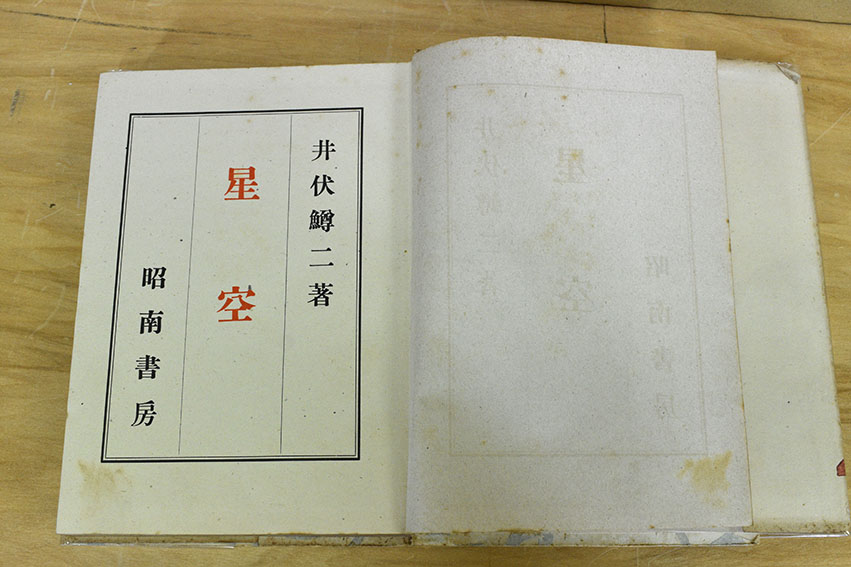 井伏鱒二著
星空
昭南書房